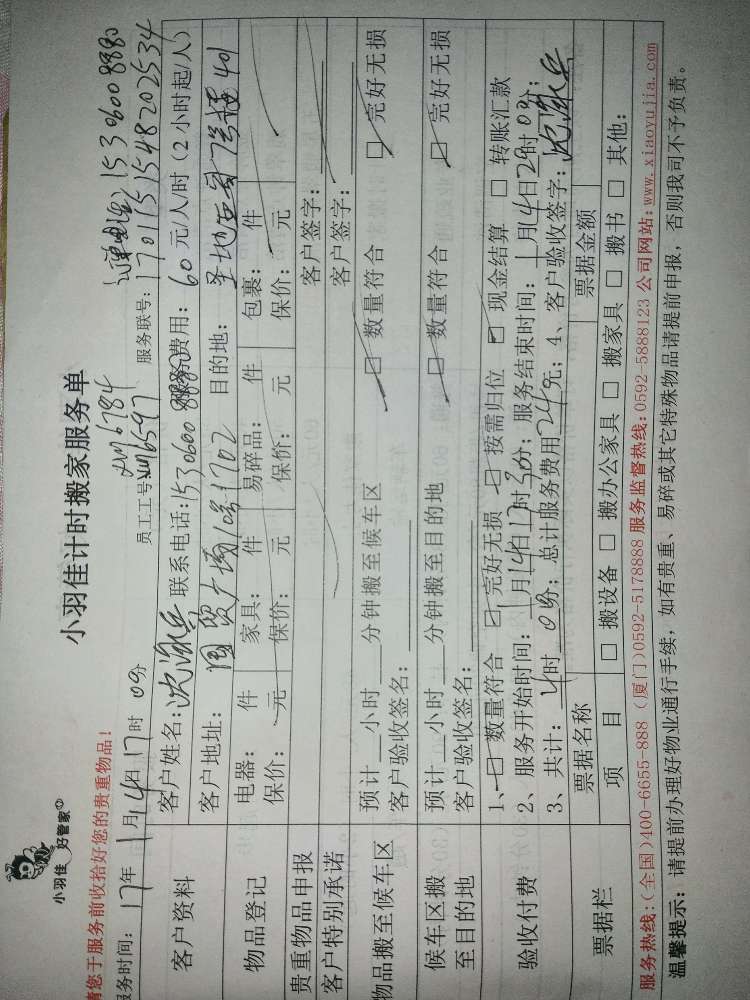 小羽佳
好管家
小羽佳计时搬家服务单
请您于服务前收拾好您的贵重物品!
订单电话 15306008880
服务时间: 17年 1月14日17时0分
员工工号: 服务联号: 170115154820 2534
客户资料
客户姓名: 联系电话:15306008880 服务费用: 60元/人/时(2小时起/人)
客户地址: 国贸广场 1702 目的地: 401
物品登记
电器: 件 家具: 件 易碎品: 件 包裹: 件
保价: 元 保价: 元 保价: 元 保价: 元
贵重物品申报 客户签字:
客户特别承诺 客户签字:
物品搬至候车区
预计__小时__分钟搬至候车区 □ 数量符合 □ 完好无损
客户验收签名:
候车区搬至目的地
预计__小时__分钟搬至目的地 □ 数量符合 □ 完好无损
客户验收签名:
验收付费
1、□ 数量符合 □ 完好无损 □ 按需归位 □ 现金结算 □ 转账汇款
2、服务开始时间: 1月14日17时30分; 服务结束时间: 1月14日 时0分;
3、共计: 4时0分; 总计服务费用240元; 4、客户验收签字:
票据栏
票据名称 票据金额
项 目 □ 搬设备 □ 搬办公家具 □ 搬家具 □ 搬书 □ 其他:
服务热线:(全国)400-6655-888 (厦门)0592-5178888 服务监督热线:0592-5888123 公司网站:www.xiaoyujia.com
温馨提示: 请提前办理好物业通行手续, 如有贵重、易碎或其它特殊物品请提前申报, 否则我司不予负责。